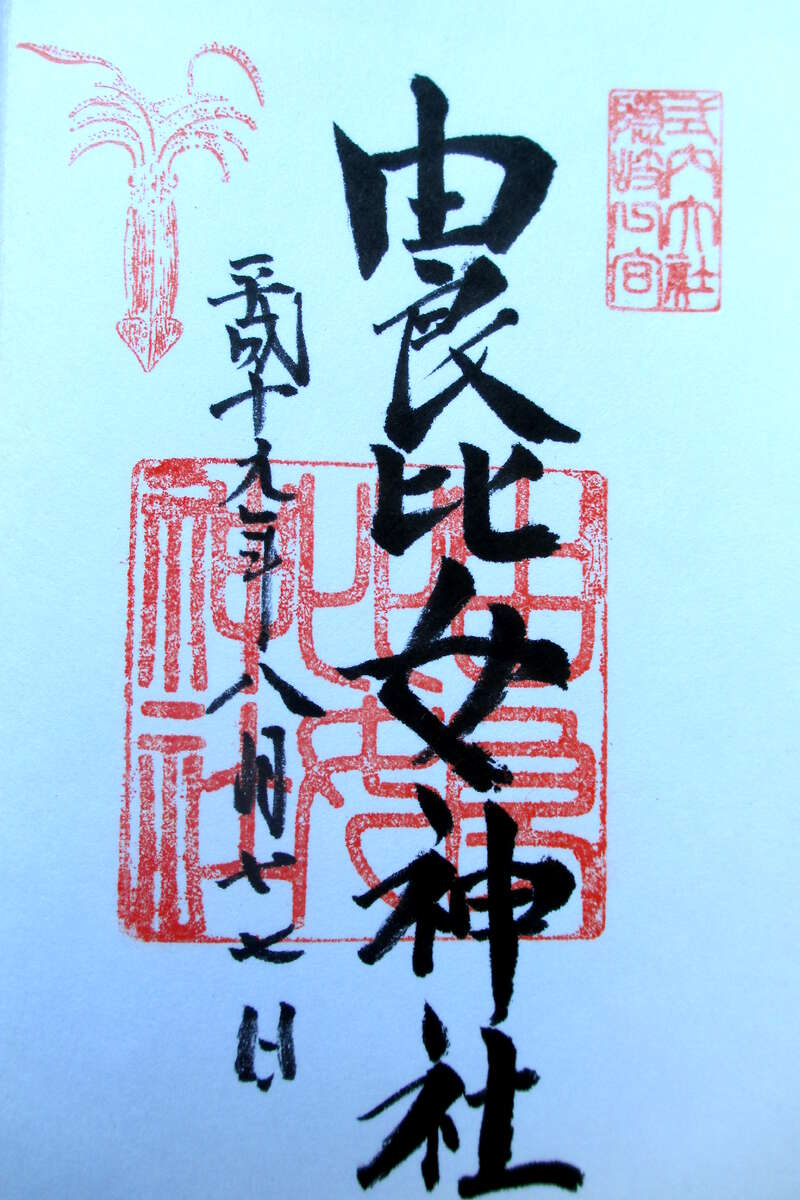 式内大社
隱岐一宮
由良比女神社
平成十九年八月十七日
由良
比女
神社